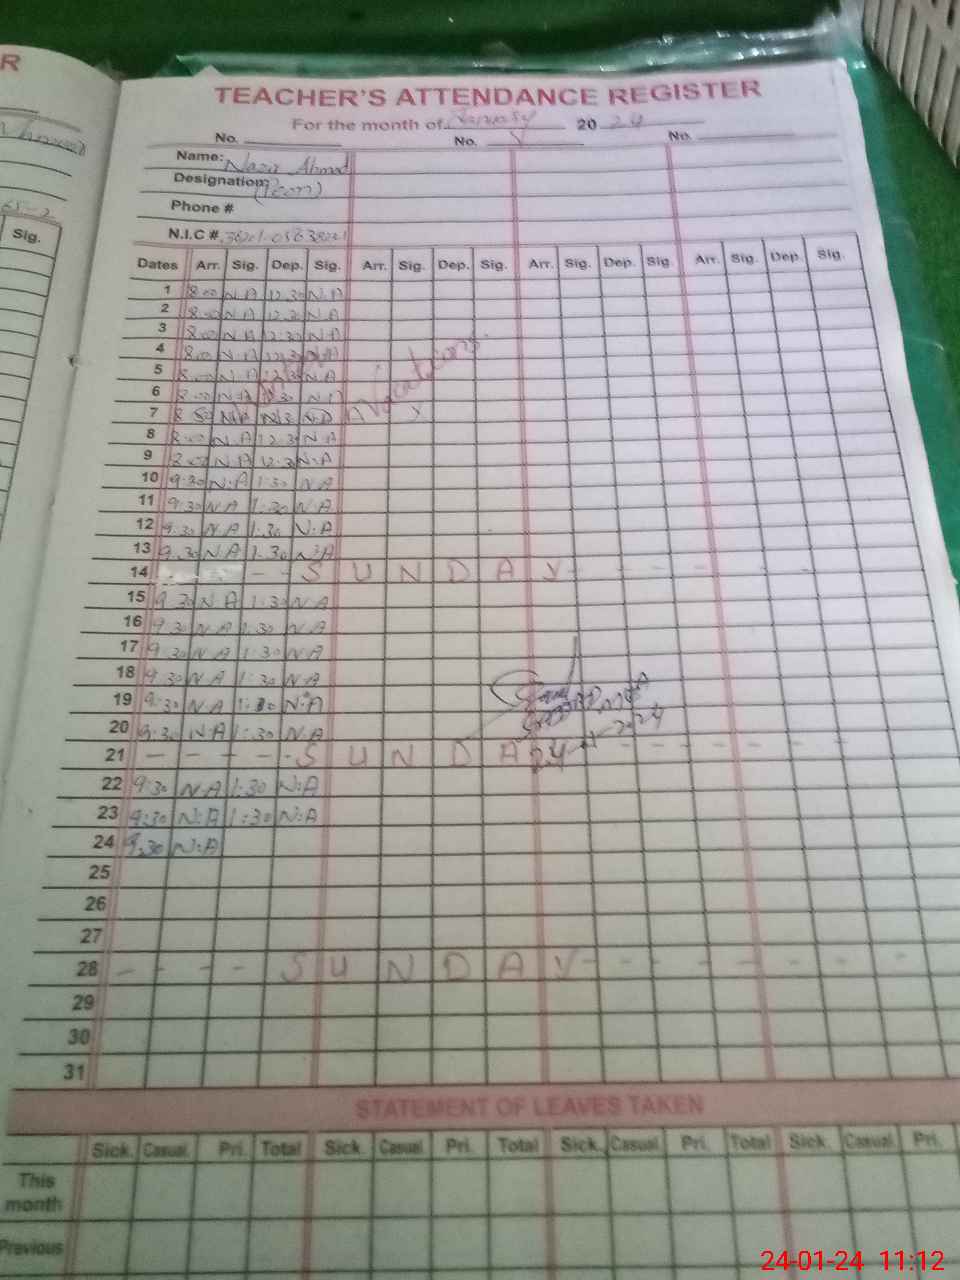 R
TEACHER'S ATTENDANCE REGISTER
For the month of January 2024
No. No. No.
Name: Nazir Ahmad
Designation (Peon)
Phone #
N.I.C #
Sig.
Dates Arr. Sig. Dep. Sig. Arr. Sig. Dep. Sig. Arr. Sig. Dep. Sig. Arr. Sig. Dep. Sig.
1 8.00 N.A 12.30 N.A
2 8.00 N.A 12.30 N.A
3 8.00 N.A 12.30 N.A
4 8.00 N.A 12.30 N.A
5 8.00 N.A 12.30 N.A
6 8.00 N.A 12.30 N.A
Winter Vacations.
7 8 N.A
8 8.00 N.A 12.30 N.A
9 8.00 N.A 12.30 N.A
10 9:30 N.A 1:30 N.A
11 9:30 N.A 1:30 N.A
12 9:30 N.A 1:30 N.A
13 9.30 N.A 1.30 N.A
14 - - S U N D A Y - - - - -
15 9.30 N.A 1:30 N.A
16 9:30 N.A 1:30 N.A
17 9:30 N.A 1:30 N.A
18 9:30 N.A 1:30 N.A
19 9:30 N.A 1:30 N.A
20 9:30 N.A 1:30 N.A
21 - - - - S U N D A - - - - - -
22 9:30 N.A 1:30 N:A
23 9:30 N:A 1:30 N:A
24 9:30 N:A
25
26
27
28 - - - - S U N D A Y - - - - - - -
29
30
31
STATEMENT OF LEAVES TAKEN
Sick. Casual. Pri. Total Sick. Casual. Pri. Total Sick. Casual. Pri. Total Sick. Casual. Pri.
This month
Previous
24-01-24 11:12